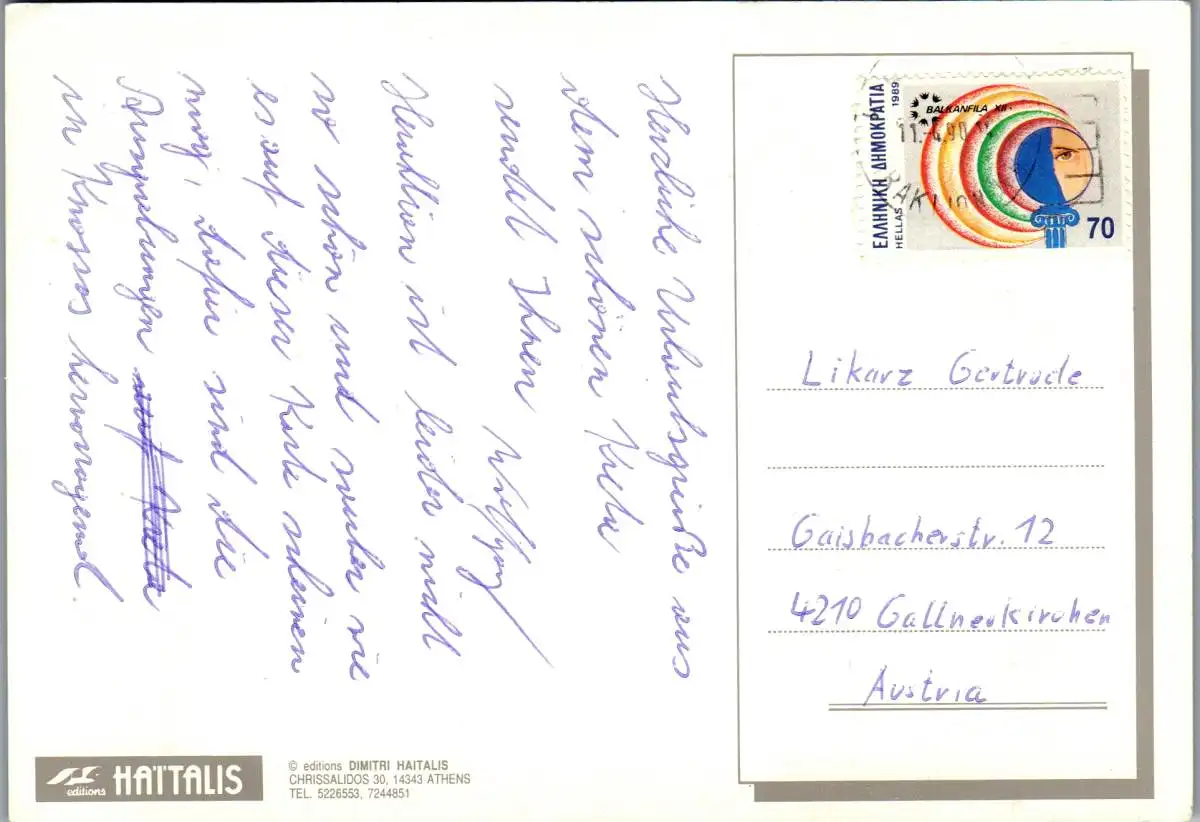 Herzliche Urlaubsgrüße aus
dem schönen Kreta
sendet Ihnen Wolfgang
Heraklion ist leider nicht
so schön und sauber wie
es auf dieser Karte scheinen
mag, dafür sind die
Umgebungen auf Kreta
in Knossos hervorragend.
ΕΛΛΗΝΙΚΗ ΔΗΜΟΚΡΑΤΙΑ
HELLAS 1989
BALKANFILA XII
70
Likarz Gertrude
Gaisbacherstr. 12
4210 Gallneukirchen
Austria
editions HAÏTALIS
© editions DIMITRI HAITALIS
CHRISSALIDOS 30, 14343 ATHENS
TEL. 5226553, 7244851